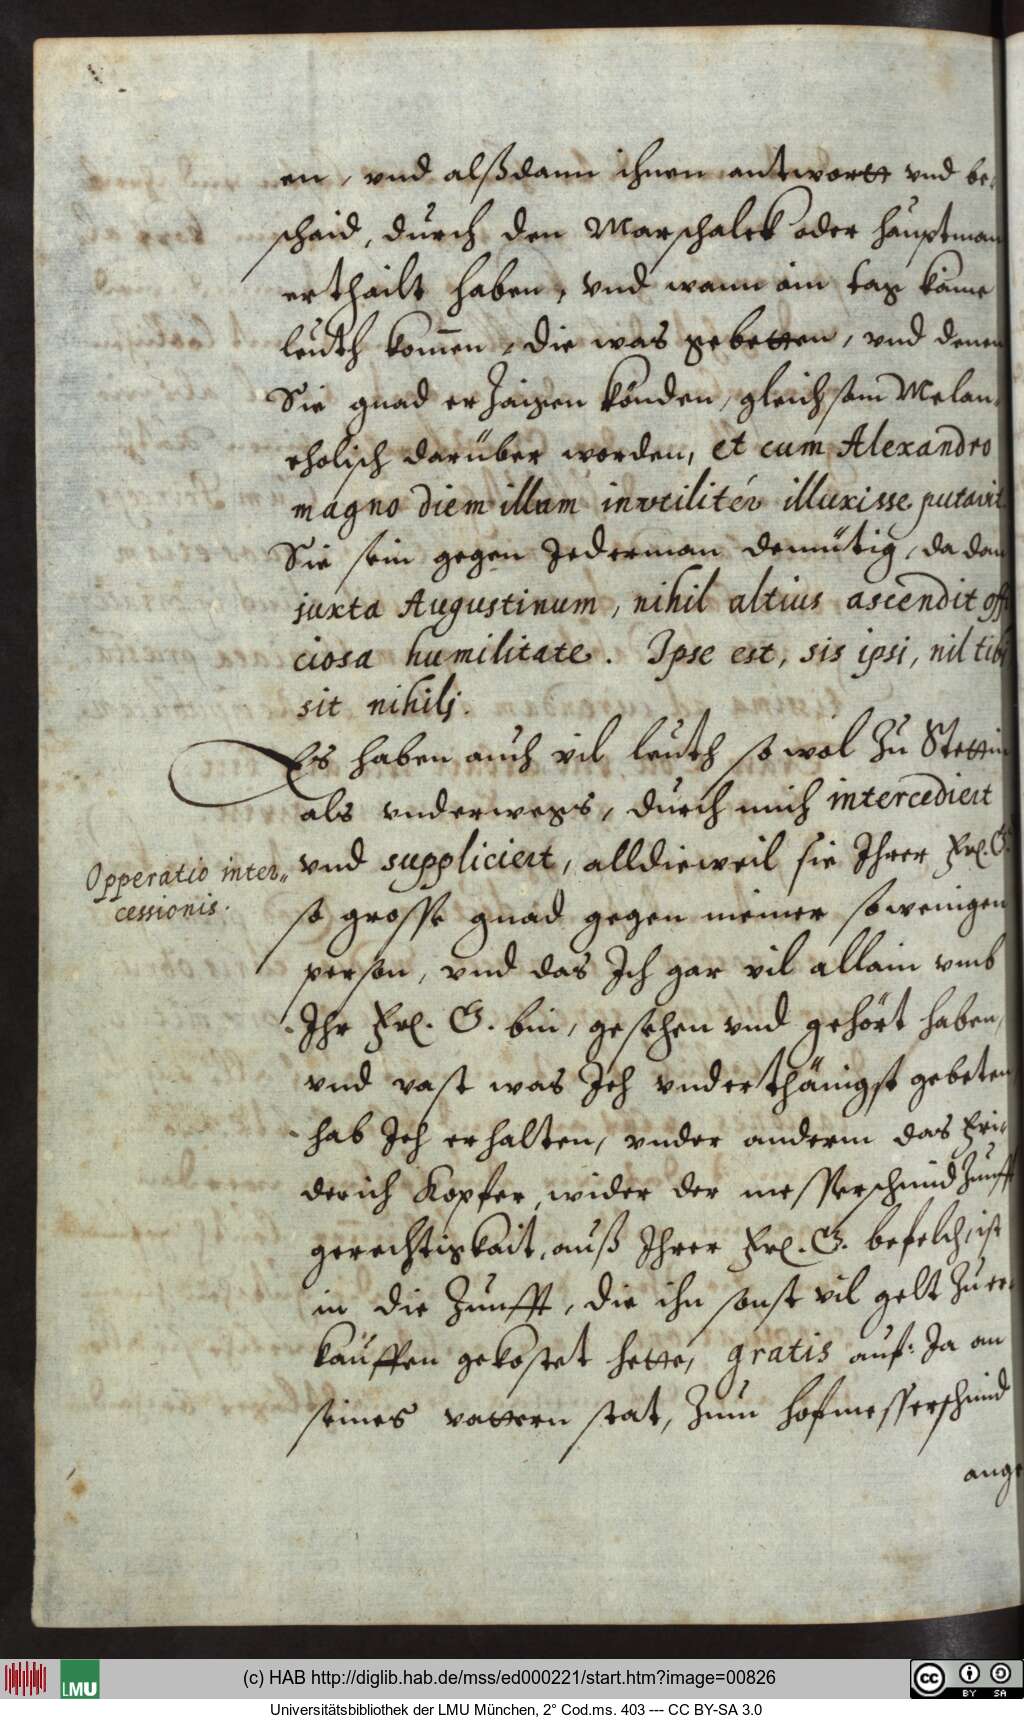 en, vnd alßdann ihnen antwortt vnd be-
schaid, durch den Marschalck oder hauptman
erthailt haben, vnd wann ain tag kaine
leuth komen, die was gebetten, vnd denen
Sie gnad erzaigen könden, gleichsam Melan-
cholisch darüber worden, et cum Alexandro
magno diem illum invtiliter illuxisse putavit
Sie sein gegen Jederman demütig, da dan
juxta Augustinum, nihil altius ascendit offi
ciosa humilitate. Ipse est, sis ipsi, nil tibi
sit nihilj.
Es haben auch vil leuth so wol zu Stettin
als vnderwegs, durch mich intercediert
Opperatio inter„
cessionis.
vnd suppliciert, alldieweil sie Ihrer Frl. G.
so grosse gnad gegen meiner so wenigen
person, vnd das Ich gar vil allain vmb
Ihr Frl. G. bin, gesehen vnd gehört haben,
vnd vast was Ich vnderthänigst gebeten
hab Ich erhalten, vnder anderm das Fri-
derich Kopfer, wider der messerschmid Zunfft
gerechtigkait, auß Ihrer Frl. G. befelch, ist
in die Zunfft, die ihn sonst vil gelt Zu er-
kauffen gekostet hette, gratis auf: Ja an
seines vattern stat, Zum hofmesserschmid
ange
(c) HAB http://diglib.hab.de/mss/ed000221/start.htm?image=00826
LMU
BY SA
Universitätsbibliothek der LMU München, 2° Cod.ms. 403 --- CC BY-SA 3.0